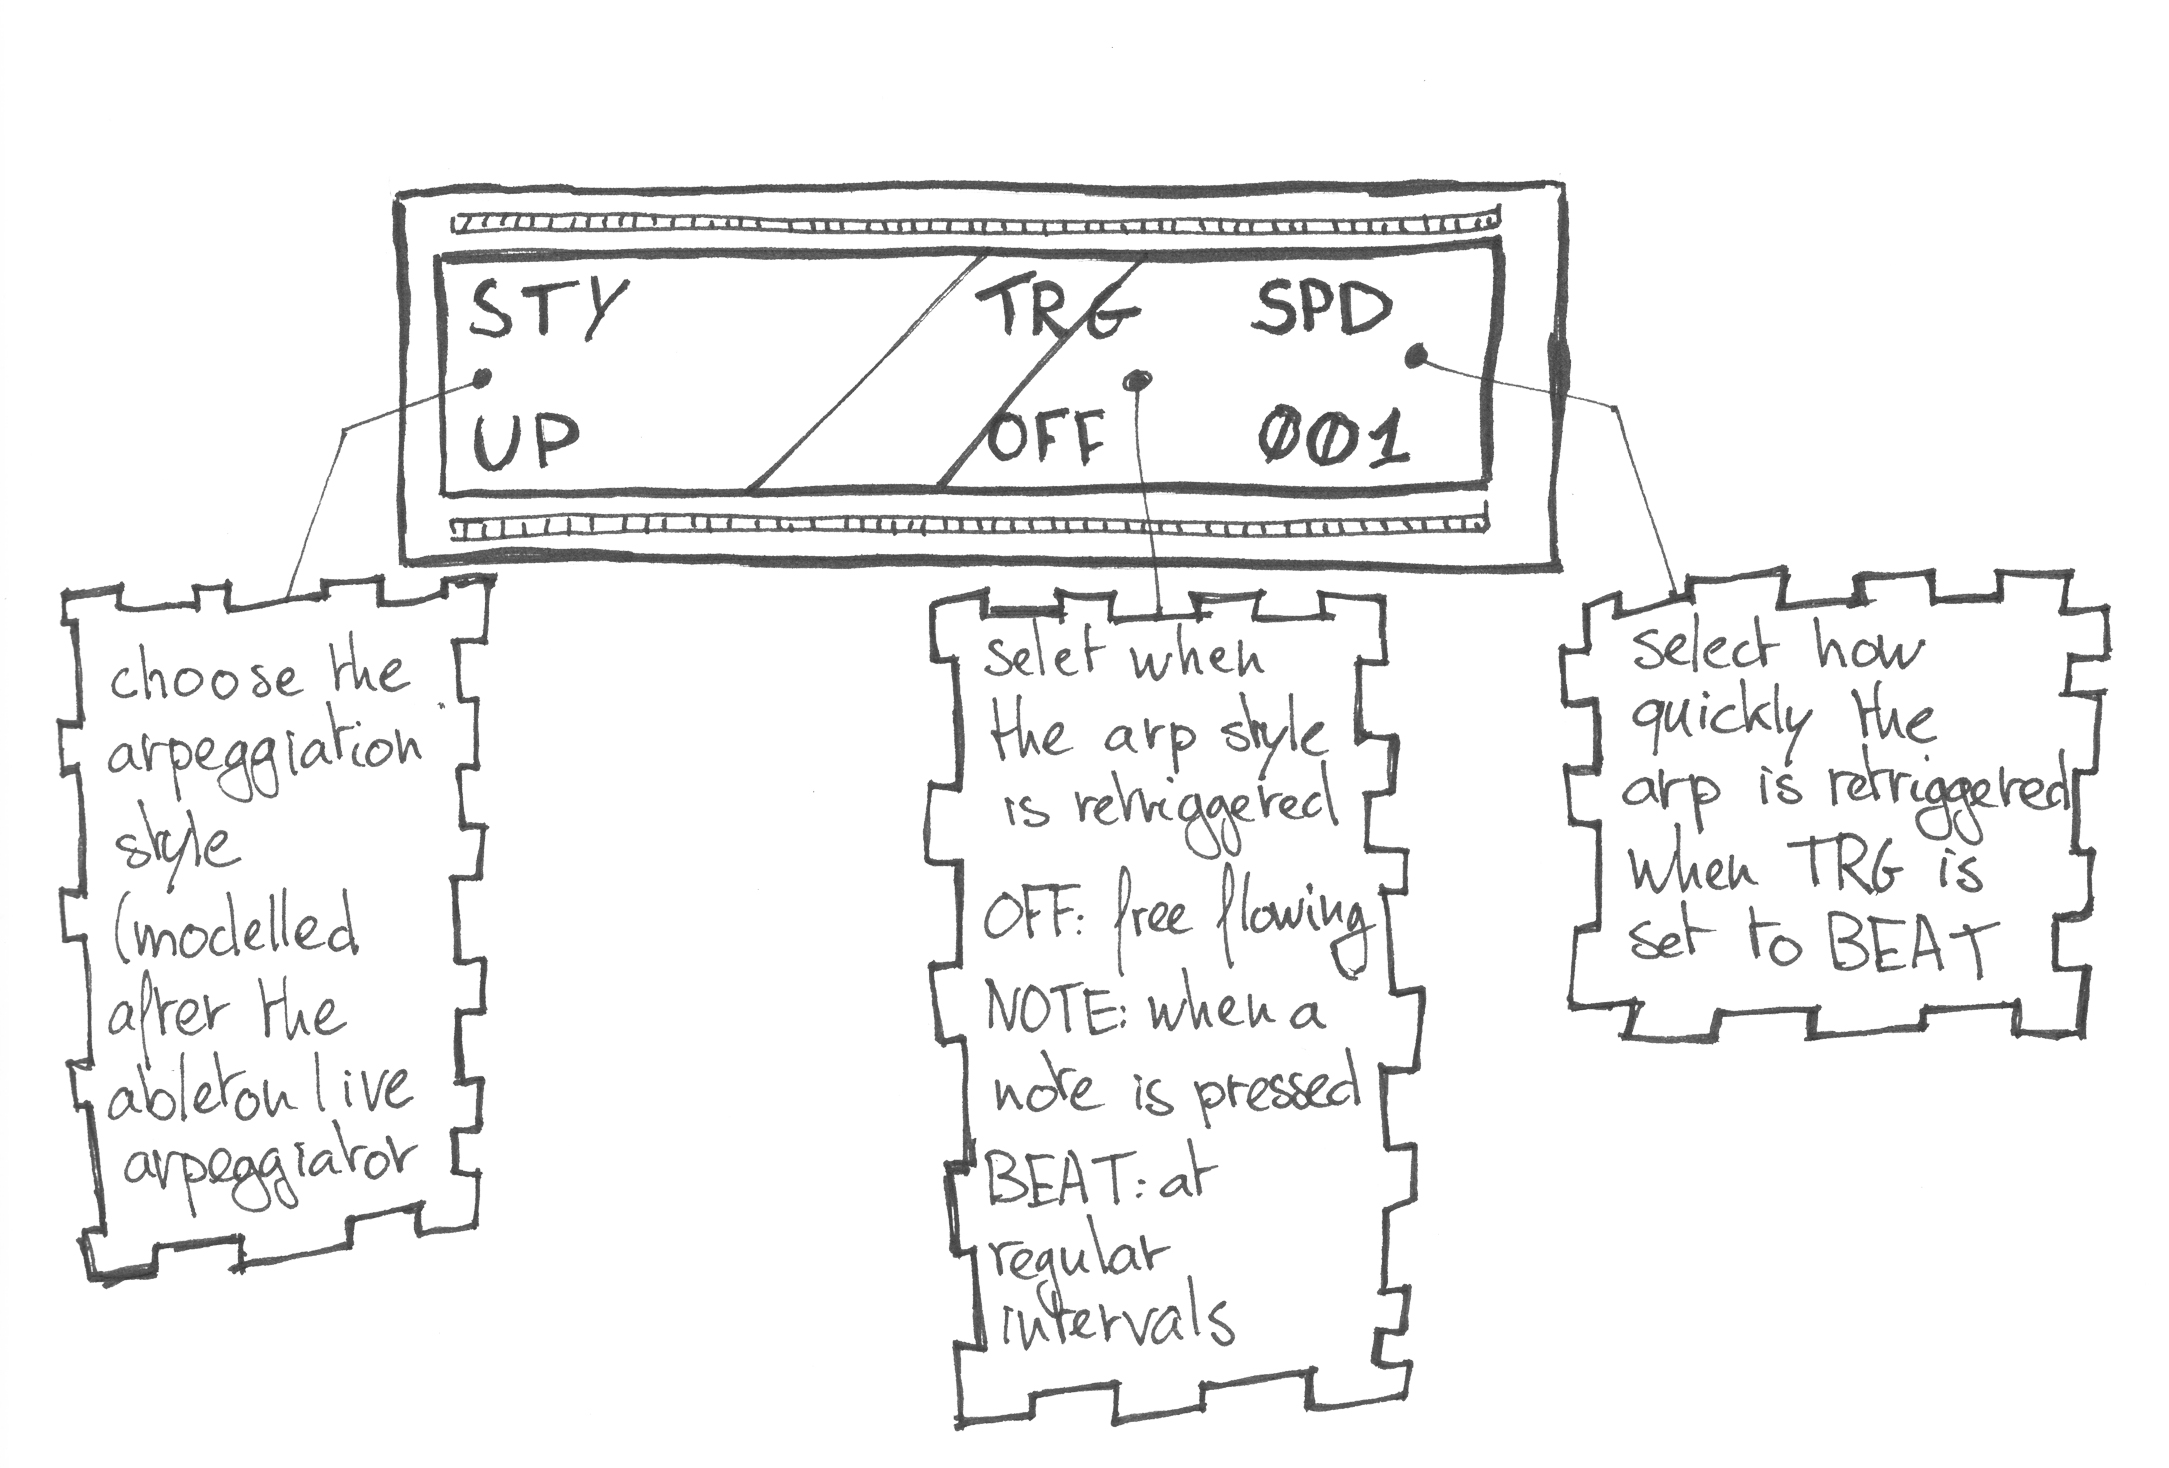 STY TRG SPD
UP OFF 001
choose the
arpeggiation
style
(modelled
after the
ableton live
arpeggiator
selet when
the arp style
is retriggered
OFF: free flowing
NOTE: when a
note is pressed
BEAT: at
regular
intervals
select how
quickly the
arp is retriggered
when TRG is
set to BEAT